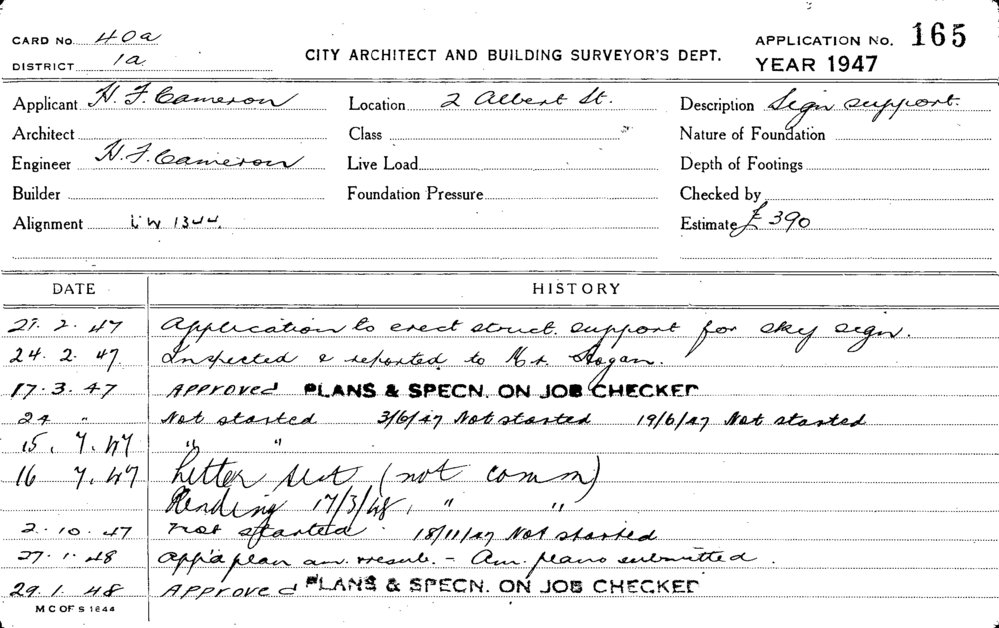 CARD No. 40a
DISTRICT 1a
CITY ARCHITECT AND BUILDING SURVEYOR'S DEPT.
APPLICATION No. 165
YEAR 1947
Applicant H. F. Cameron Location 2 Albert St. Description Sign support.
Architect Class Nature of Foundation
Engineer H. F. Cameron Live Load Depth of Footings
Builder Foundation Pressure Checked by
Alignment 1344. Estimate £ 390
DATE HISTORY
21. 2. 47 Application to erect struct. support for sky sign.
24. 2. 47 Inspected & reported to Mr. Hogan.
17. 3. 47 Approved PLANS & SPECN. ON JOB CHECKED
24 " Not started 3/6/47 Not started 19/6/47 Not started
15. 7. 47 " "
16 7. 47 Letter sent (not comm)
Pending 17/3/48. " "
2. 10. 47 Not started 18/11/47 Not started
27. 1. 48 plan am. resub. - Am. plans submitted.
29. 1. 48 Approved PLANS & SPECN. ON JOB CHECKED
M C OF S 1644